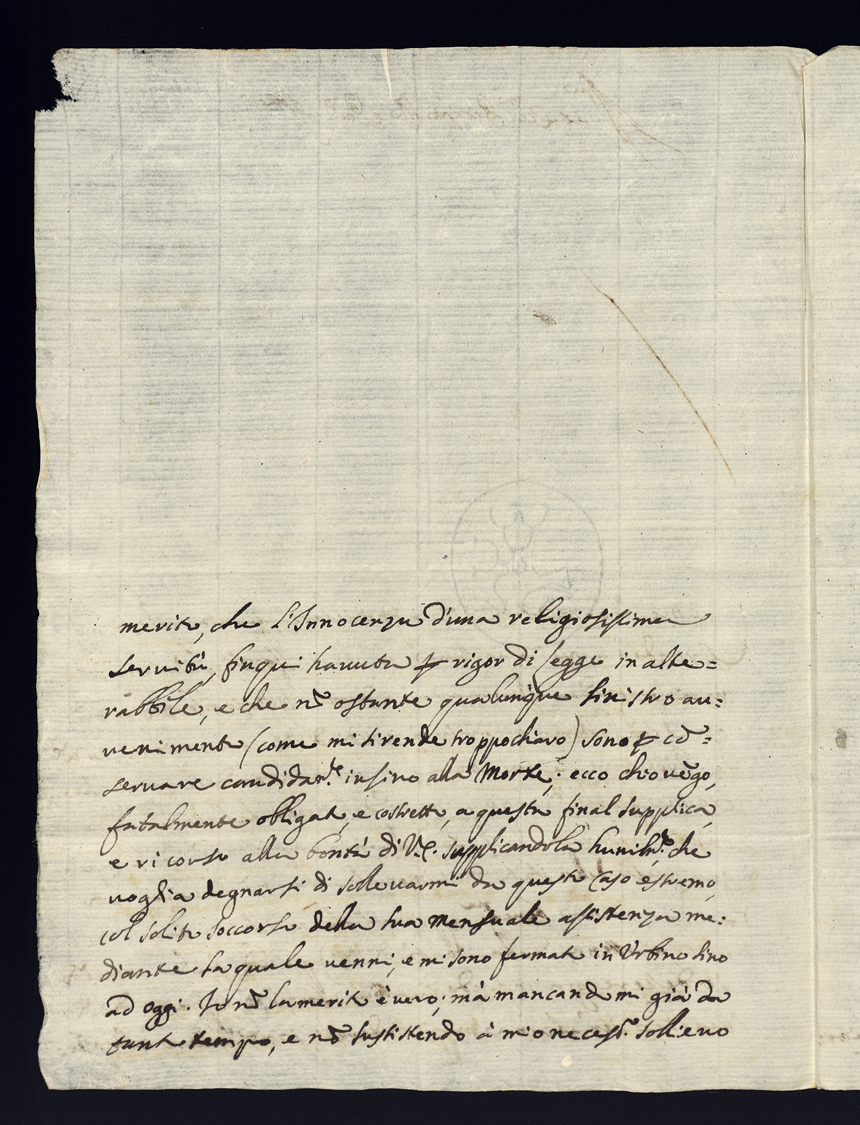 merito, che l'Innocenza d'una religiosissima
servitù, finqui havuta per rigor di legge inalte=
rabbile, e che nõ ostante qualunque sinistro au=
venimento (come mi si rende troppo chiaro) sono per cõ=
servare candidam.te insino alla Morte; ecco ch'io vẽgo,
fatalmente obligato, e costretto, a questa final supplica,
e ricorso alla bontà di V.E. supplicandola humilm.te che
voglia degnarsi di sollevarmi da questo caso estremo,
col solito soccorso della sua mensuale assistenza me:
diante la quale venni, e mi sono fermato in Urbino sino
ad oggi. Io nõ la merito è vero; mà mancandomi già da
tanto tempo, e nõ sussistendo à mio necess.o sollievo